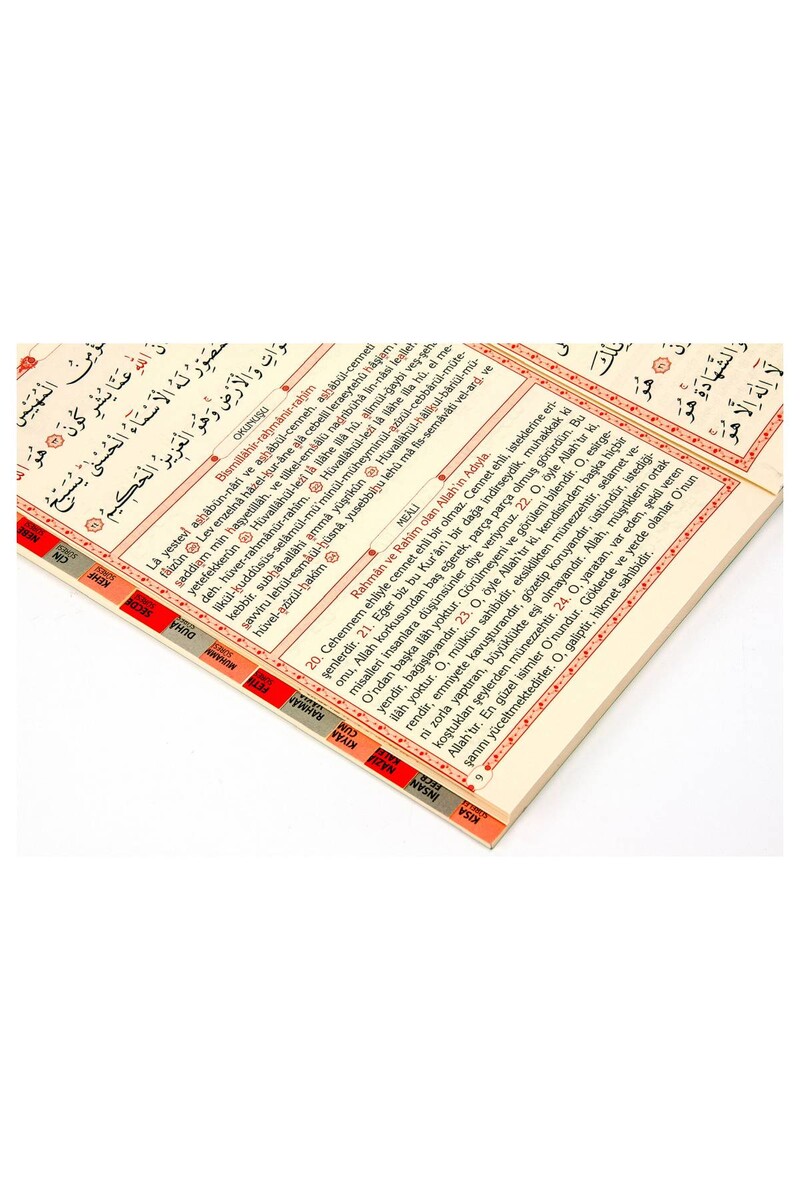 الْمُهَيْمِنُ
اللّٰهِ عَمَّا يُشْرِكُونَ ﴿٢٣﴾ هُوَ
الْمُصَوِّرُ لَهُ الْاَسْمَٓاءُ الْحُسْنٰىۜ يُسَبِّحُ
وَالْاَرْضِۚ وَهُوَ الْعَزِيزُ الْحَكِيمُ ﴿٢٤﴾
OKUNUŞU
Bismillâhir-rahmânir-rahîm
Lâ yestevî ashâbün-nâri ve ashâbül-cenneh. ashâbül-cenneti
fâizûn ⑳ Lev enzelnâ hâzel-kur-âne alâ cebelilleraeytehû hâşiam
saddiam min haşyetillâh. ve tilkel-emsâlü nadribühâ lin-nâsi leallehüm
yetefekkerûn ㉑ Hüvallâhül-lezî lâ ilâhe illâ hû. alimül-gaybi veş-şehâ
deh. hüver-rahmânür-rahîm. ㉒ Hüvallâhül-lezî lâ ilâhe illa hû. el me-
likül-kuddûsüs-selâmül-mü'minül-müheyminül-azîzül-cebbârül-müte-
kebbir. subhânallâhi ammâ yüşrikûn ㉓ Hüvallâhül-hâlikul-bâriül-mü-
savviru lehül-esmâül-hüsnâ, yusebbihu lehû mâ fis-semâvâti vel-ard, ve
hüvel-azîzül-hakîm ㉔
MEÂLİ
Rahmân ve Rahîm olan Allah'ın Adıyla.
20. Cehennem ehliyle cennet ehli bir olmaz. Cennet ehli, isteklerine eri-
şenlerdir. 21. Eğer biz bu Kur'ân'ı bir dağa indirseydik, muhakkak ki
onu, Allah korkusundan baş eğerek, parça parça olmuş görürdün. Bu
misalleri insanlara düşünsünler diye veriyoruz. 22. O, öyle Allah'tır ki,
O'ndan başka ilâh yoktur. Görülmeyeni ve görüleni bilendir. O, esirge-
yendir, bağışlayandır. 23. O, öyle Allah'tır ki, kendisinden başka hiçbir
ilâh yoktur. O, mülkün sahibidir, eksiklikten münezzehtir, selamet ve-
rendir, emniyete kavuşturandır, gözetip koruyandır, üstündür, istediği-
ni zorla yaptıran, büyüklükte eşi olmayandır. Allah, müşriklerin ortak
koştukları şeylerden münezzehtir. 24. O, yaratan, var eden, şekil veren
Allah'tır. En güzel isimler O'nundur. Göklerde ve yerde olanlar O'nun
şanını yüceltmektedirler. O, galiptir, hikmet sahibidir.
9
لَا اِلٰهَ اِلَّا هُوَۚ
وَالشَّهَادَةِۚ هُوَ
هُوَ
NEBE
SÛRESİ
CİN
SÛRESİ
KEHF
SÛRESİ
SECDE
SÛRESİ
DUHA
MUHAMM
SÛRESİ
FETİH
SÛRE
RAHMAN
KIYAM
CUM
NAZİA
KALE
İNSAN
FECR
KISA
SÛRELE